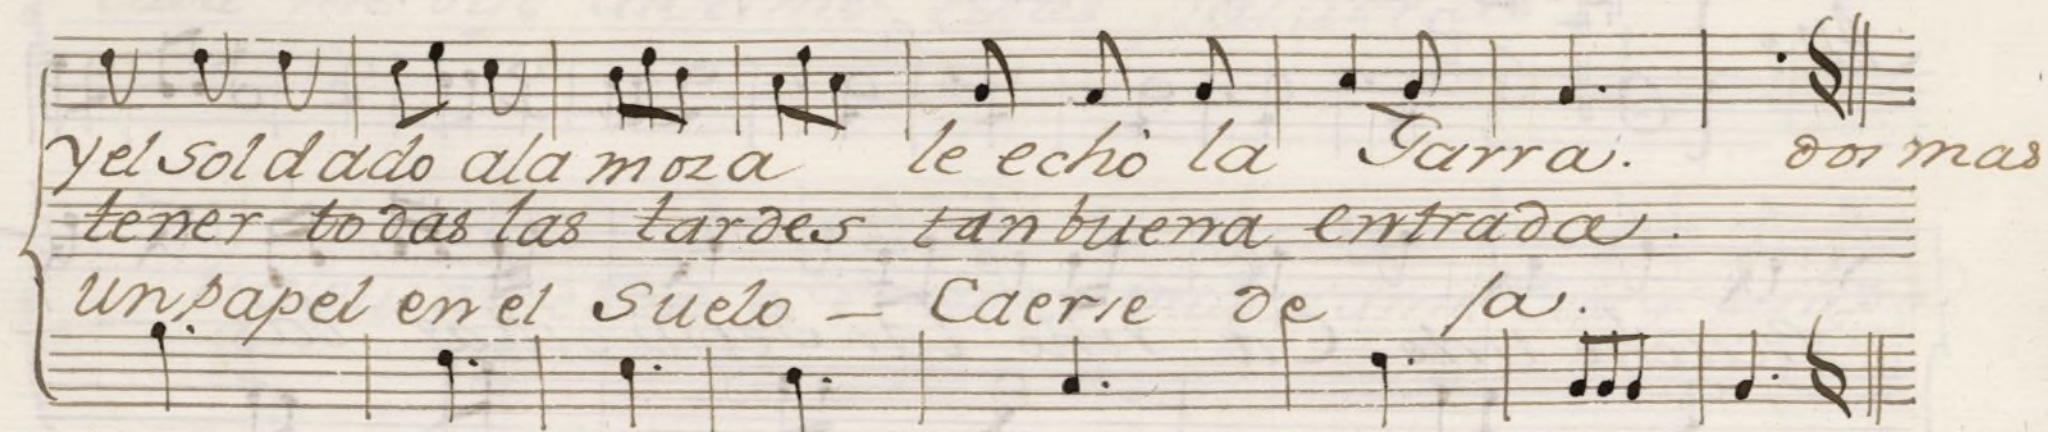 y el soldado ala moza le echò la Garra. dos mas
tener todas las tardes tan buena entrada.
un papel en el suelo – Caerse deja.